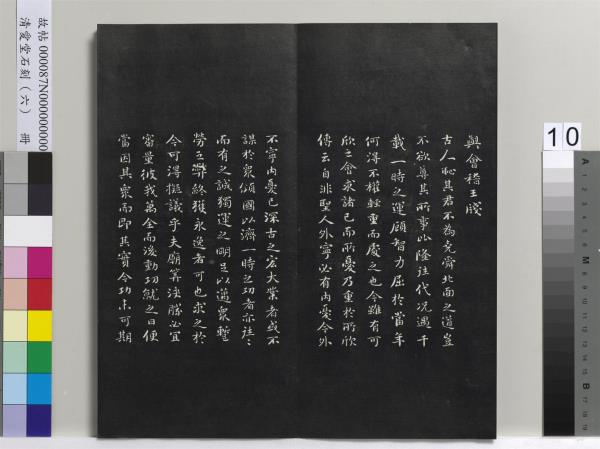 故帖 000087N000000000
清愛堂石刻（六） 冊
10
A
M
B
與會稽王牋
古人恥其君不為堯舜北面之道豈
不欲尊其所事比隆往代況遇千
載一時之運顧智力屈於當年
何得不權輕重而處之也今雖有可
欣之會求諸己而所憂乃重於所欣
傳云自非聖人外寧必有內憂今外
不寧內憂已深古之宏大業者或不
謀於衆傾國以濟一時之功者亦往〻
而有之誠獨運之明足以邁衆暫
勞之弊終獲永逸者可也求之於
今可得擬議乎夫廟筭決勝必宜
審量彼我萬全而後動功就之日便
當因其衆而即其實今功未可期